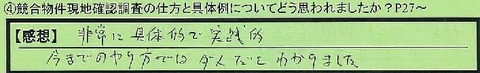 ④競合物件現地確認調査の仕方と具体例についてどう思われましたか？P27～
【感想】 非常に具体的で実践的
今までのやり方ではダメだとわかりました